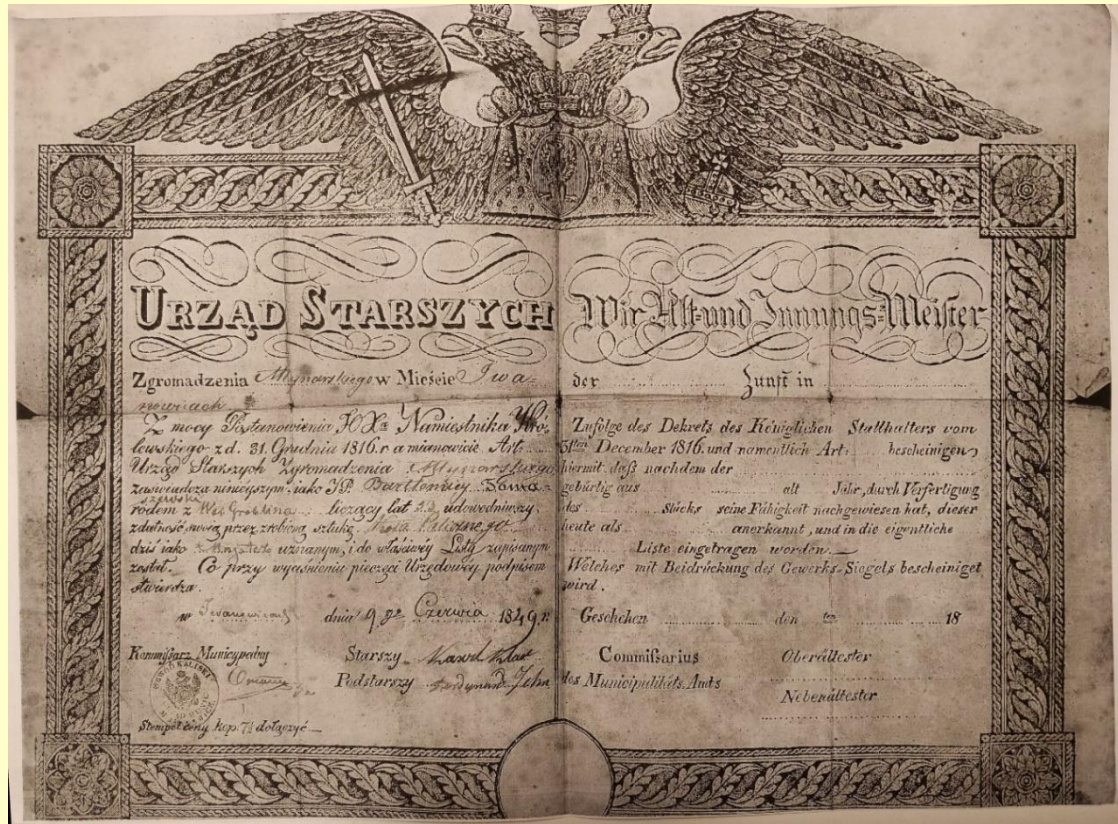 URZĄD STARSZYCH
Zgromadzenia Młynarskiego w Mieście Iwa-
nowicach
Z mocy Postanowienia JO Xa Namiestnika Kró-
lewskiego z d. 31. Grudnia 1816. r. a mianowicie Art:
Urząd Starszych Zgromadzenia Młynarskiego
zaświadcza ninieyszym, iako JP. Bartłomiey
rodem z Wsi liczący lat udowodniwszy
zdatność swoią przez zrobienie sztuki,
dziś iako uznanym, i do właściwéy Listy zapisanym
został. Co przy wyciśnieniu pieczęci Urzędowéy podpisem
stwierdza.
w Iwanowicach dnia 9 go Czerwca 1849 r.
Kommissarz Municypalny
Starszy
Podstarszy Ferdynand John
Stempel ceny kop. 7½ dołączyć
Wir Alt- und Innungs-Meister
der Zunft in
Zufolge des Dekrets des Königlichen Statthalters vom
31ten December 1816. und namentlich Art: bescheinigen
hiermit, daß nachdem der
gebürtig aus alt Jahr, durch Verfertigung
des Stücks seine Fähigkeit nachgewiesen hat, dieser
heute als anerkannt, und in die eigentliche
Liste eingetragen worden.
Welches mit Beidrückung des Gewerks-Siegels bescheiniget
wird.
Geschehen den ten 18
Commißarius
des Municipalitäts Amts
Oberältester
Nebenältester